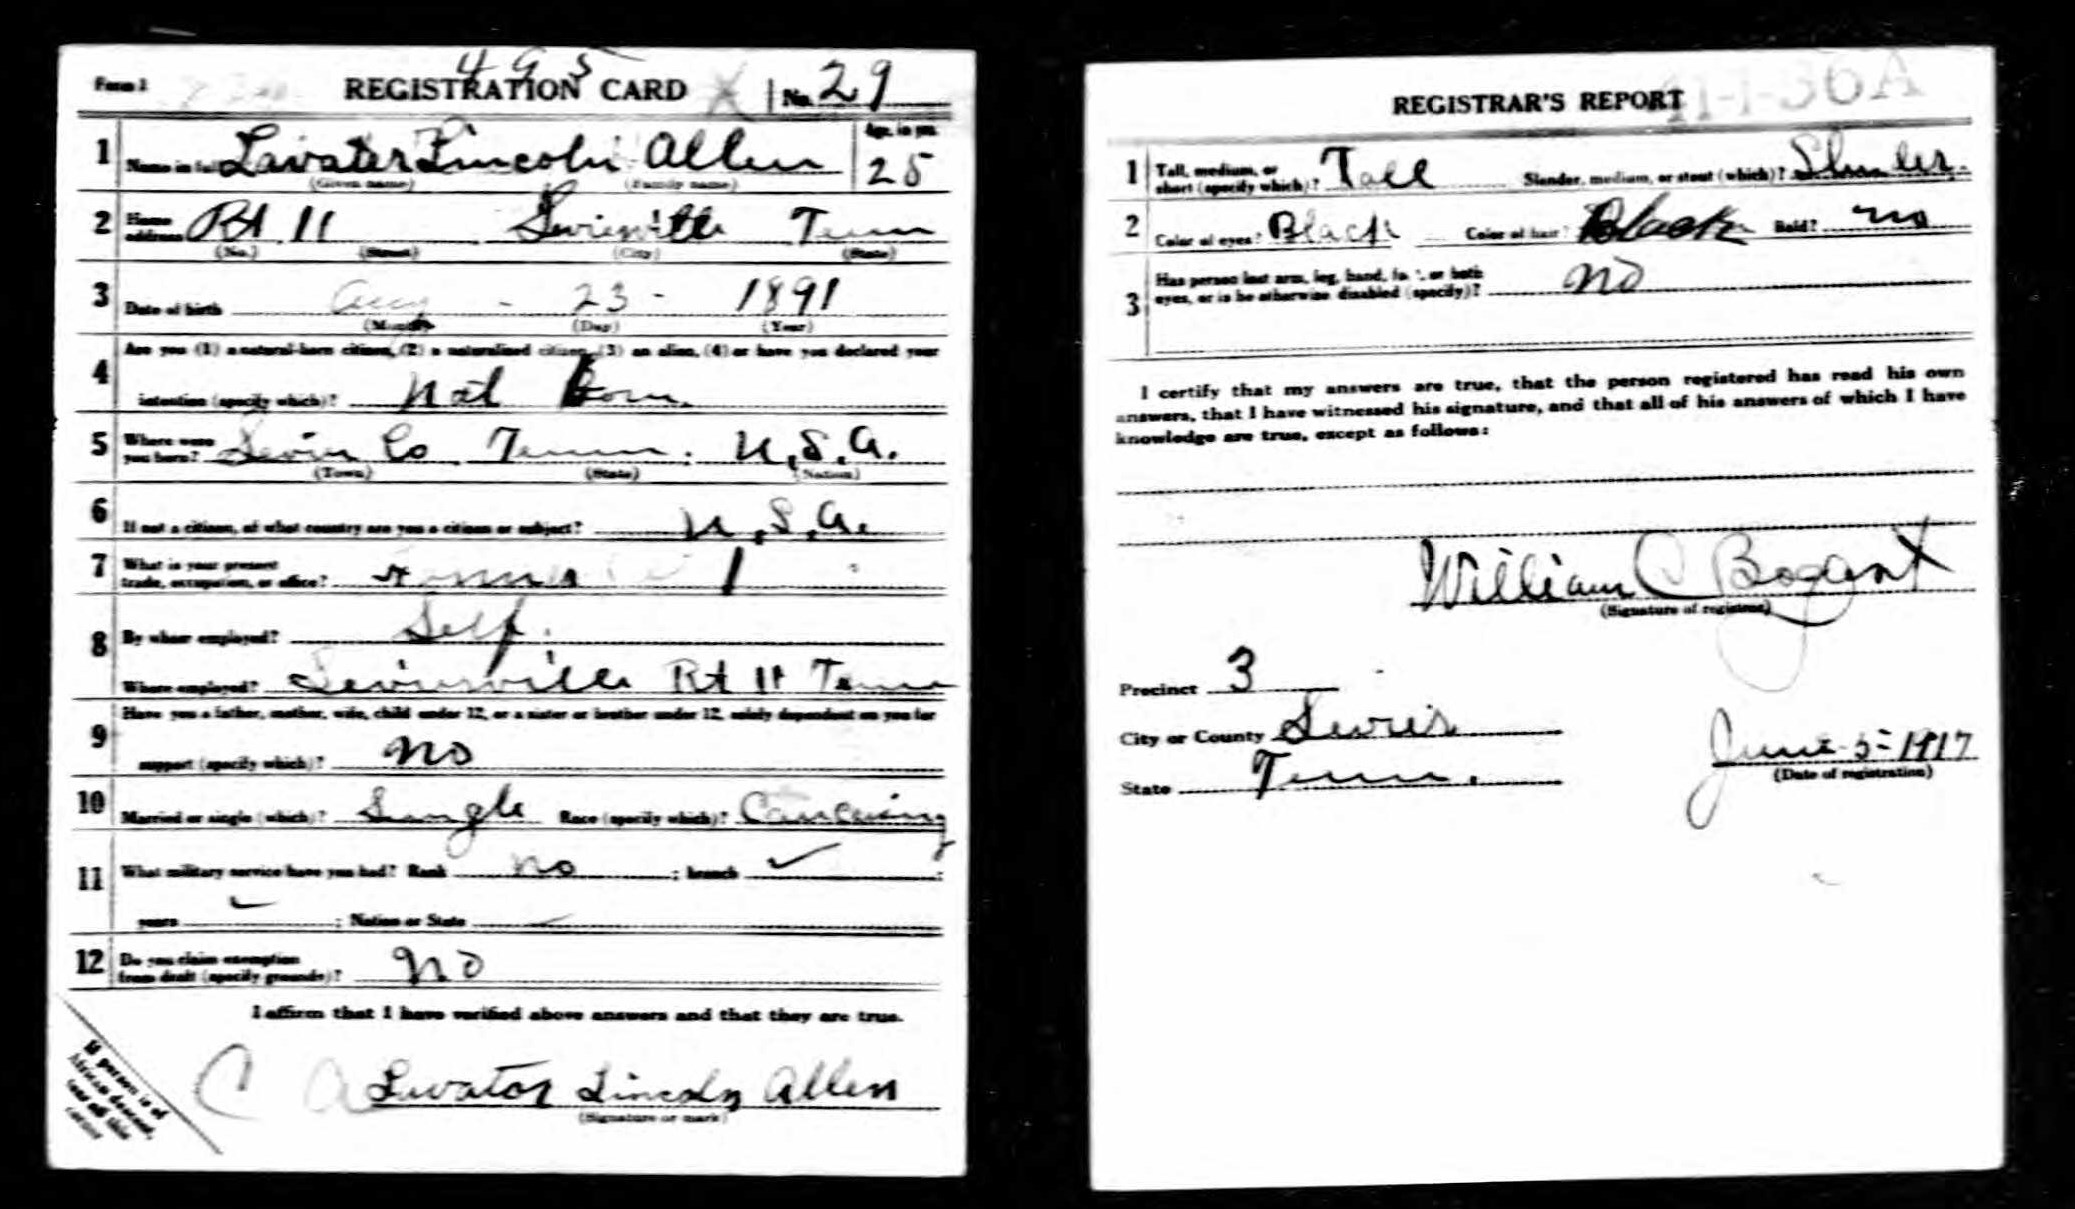 495
Form 1 REGISTRATION CARD No. 29
1 Name in full Lavater Lincoln Allen Age, in yrs. 25
(Given name) (Family name)
2 Home address Rt 11 Sevierville Tenn
(No.) (Street) (City) (State)
3 Date of birth Aug - 23 - 1891
(Month) (Day) (Year)
4 Are you (1) a natural-born citizen, (2) a naturalized citizen, (3) an alien, (4) or have you declared your
intention (specify which)? Nat Born
5 Where were you born? Sevier Co Tenn. U.S.A.
(Town) (State) (Nation)
6 If not a citizen, of what country are you a citizen or subject? U.S.A.
7 What is your present trade, occupation, or office? Farmer 1
8 By whom employed? Self.
Where employed? Sevierville Rt 11 Tenn
9 Have you a father, mother, wife, child under 12, or a sister or brother under 12, solely dependent on you for
support (specify which)? No
10 Married or single (which)? Single Race (specify which)?
11 What military service have you had? Rank no ; branch ✓ ;
years ✓ ; Nation or State
12 Do you claim exemption from draft (specify grounds)? No
I affirm that I have verified above answers and that they are true.
C A Lavator Lincoln Allen
(Signature or mark)
If person is of
African descent,
tear off this
corner
REGISTRAR'S REPORT 41-1-36A
1 Tall, medium, or short (specify which)? Tall Slender, medium, or stout (which)? Slender
2 Color of eyes? Black Color of hair? Black Bald? no
3 Has person lost arm, leg, hand, foot, or both
eyes, or is he otherwise disabled (specify)? no
I certify that my answers are true, that the person registered has read his own
answers, that I have witnessed his signature, and that all of his answers of which I have
knowledge are true, except as follows:
William C Bogart
(Signature of registrar)
Precinct 3
City or County Sevier
State Tenn.
June 5 = 1917
(Date of registration)